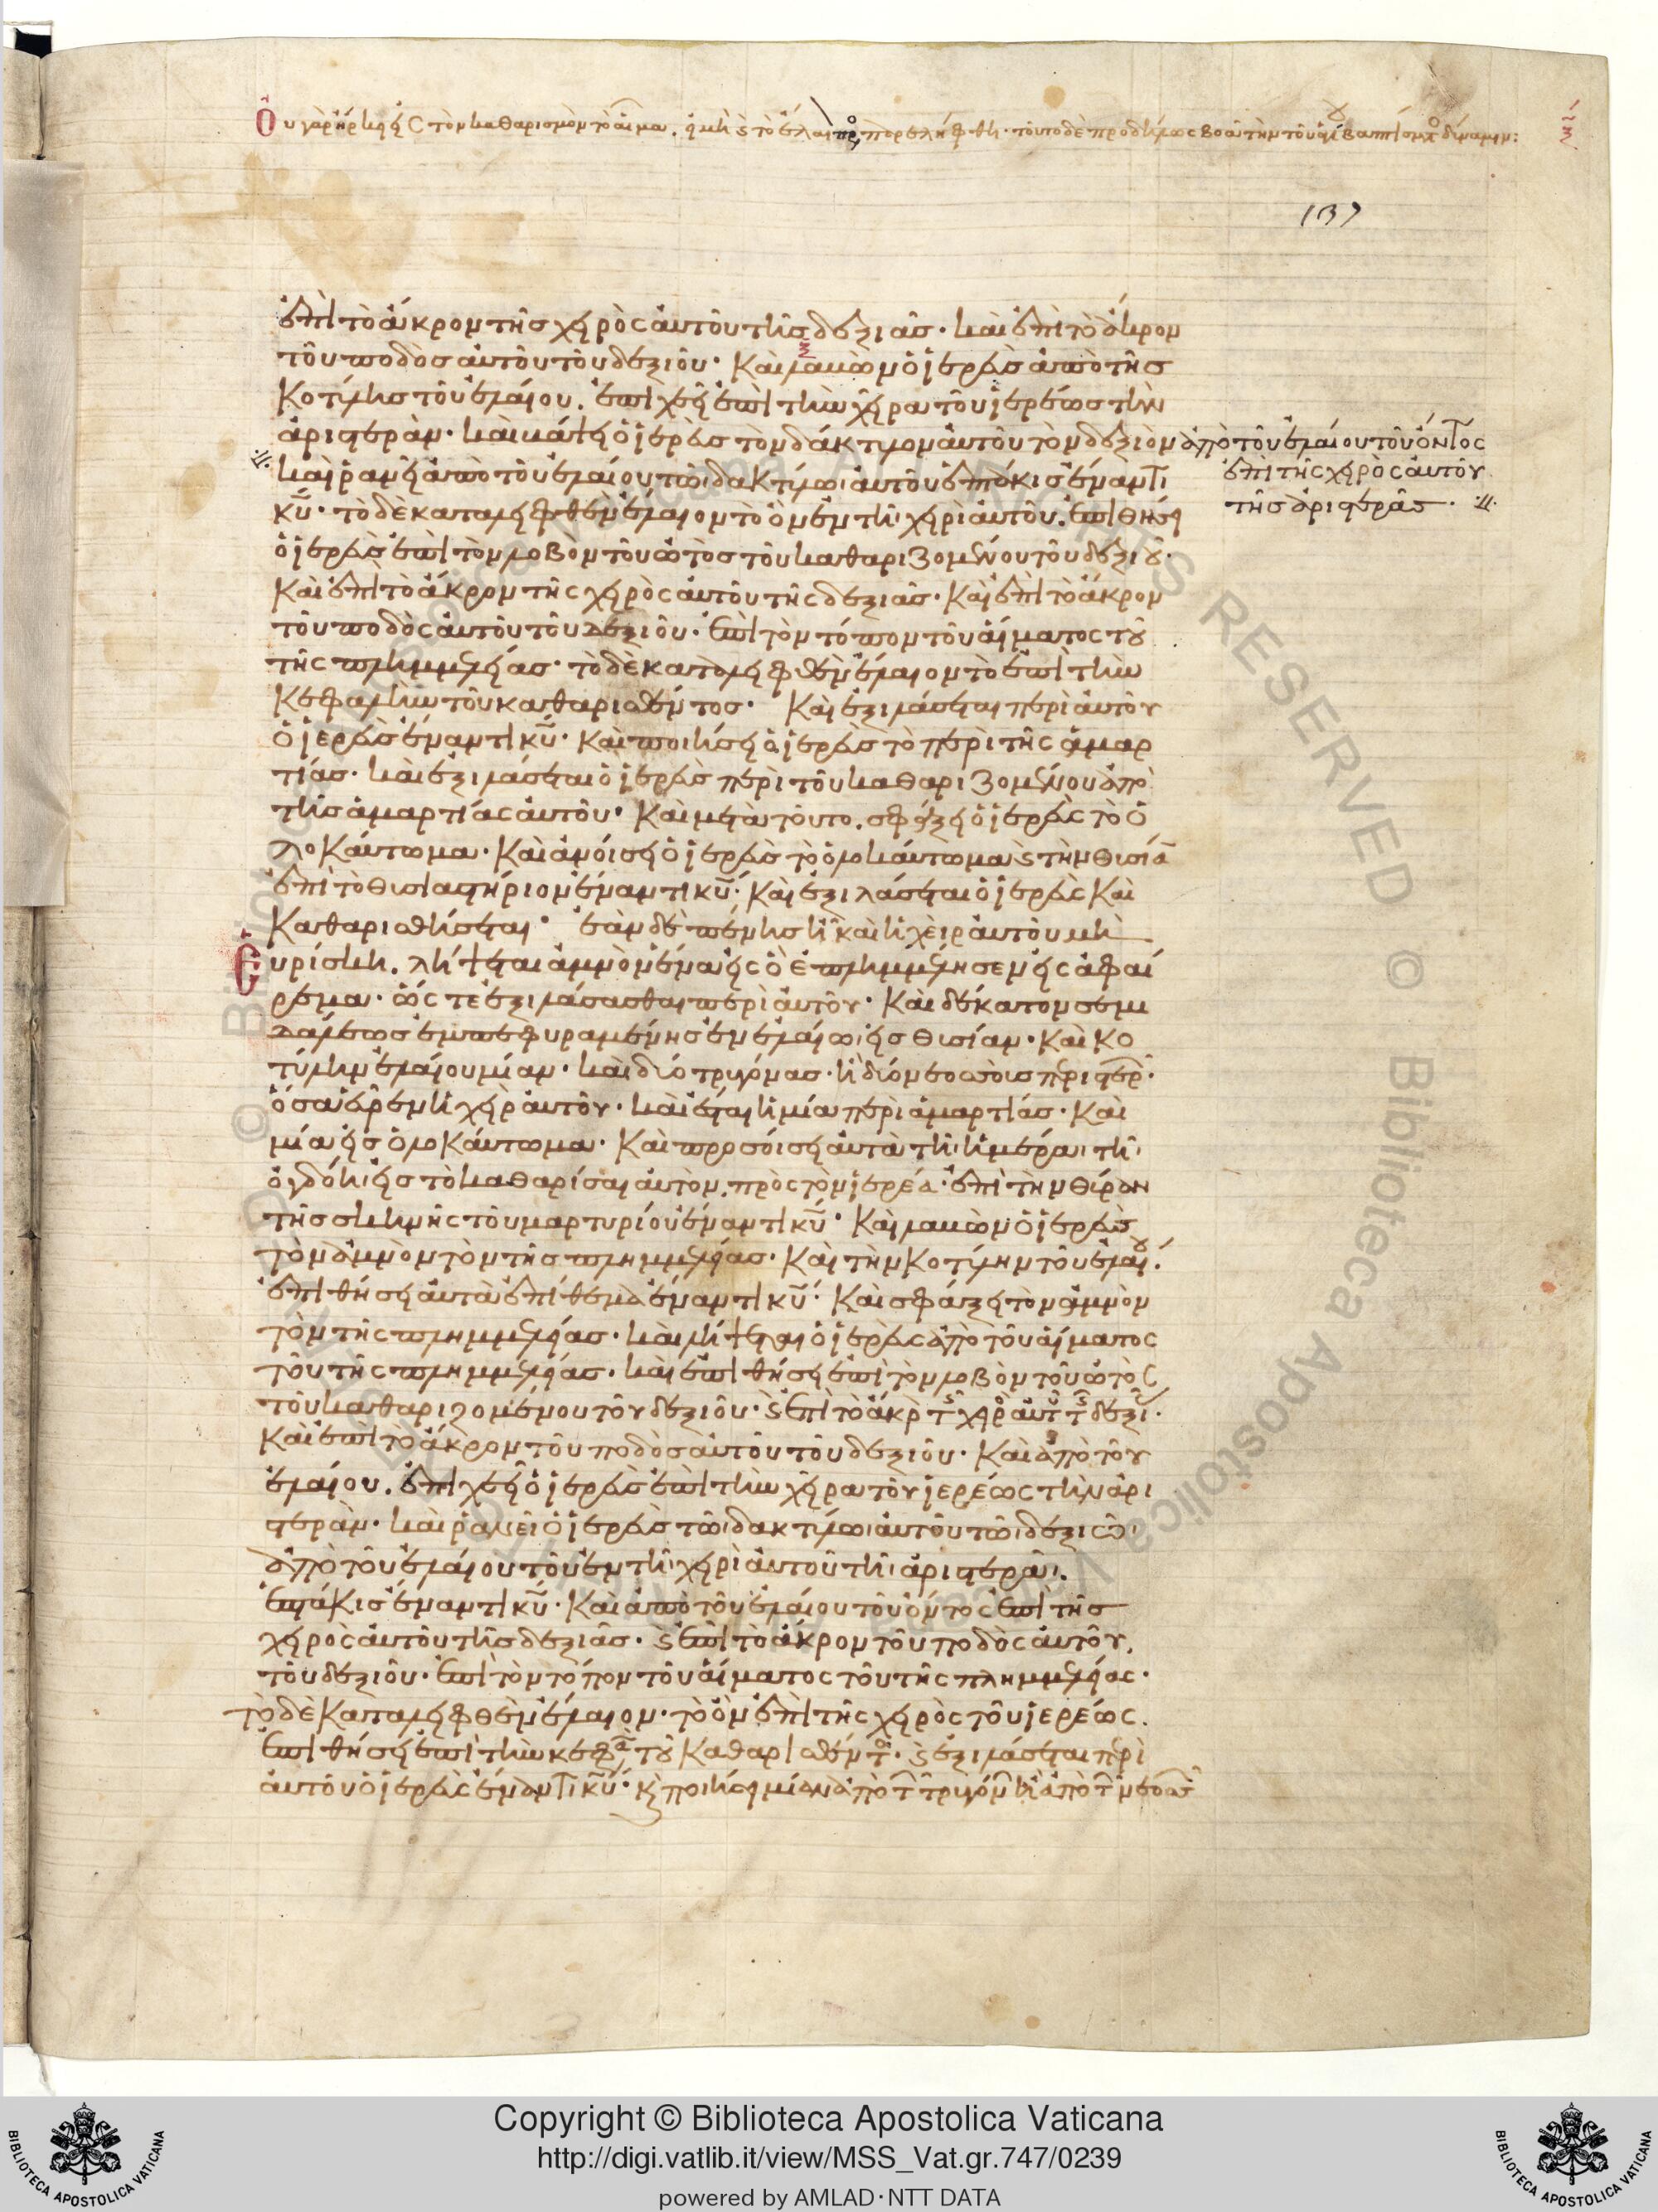 Οὐ γὰρ ἤρκει εἰς τὸν καθαρισμὸν τὸ αἷμα. εἰ μὴ ϛ τὸ ἔλαιον προσπαρελήφθη· τοῦτο δὲ προδήλως βοᾷ τὴν τοῦ ἁγίου βαπτίσματος δύναμιν:
ξϊ
137
ἐπὶ τὸ ἄκρον τῆς χειρὸς αὐτοῦ τῆς δεξιᾶς· καὶ ἐπὶ τὸ ἄκρον
τοῦ ποδὸς αὐτοῦ τοῦ δεξιοῦ· Καὶ λαβὼν ὁ ἱερεὺς ἀπὸ τῆς
Κοτύλης τοῦ ἐλαίου. ἐπιχεεῖ ἐπὶ τὴν χεῖρα τοῦ ἱερέως τὴν
ἀριστεράν· καὶ βάψει ὁ ἱερεὺς τὸν δάκτυλον αὐτοῦ τὸν δεξιὸν ἀπὸ τοῦ ἐλαίου τοῦ ὄντος
ἐπὶ τῆς χειρὸς αὐτοῦ
τῆς ἀριστερᾶς·
καὶ ῥανεῖ ἀπὸ τοῦ ἐλαίου τῶ δακτύλω αὐτοῦ ἑπτάκις ἔναντι
κῡ· τὸ δὲ καταλειφθὲν ἔλαιον τὸ ὂν ἐν τῆ χειρὶ αὐτοῦ. ἐπιθήσει
ὁ ἱερεὺς ἐπὶ τὸν λοβὸν τοῦ ὠτὸς τοῦ καθαριζομένου τοῦ δεξιοῦ·
Καὶ ἐπὶ τὸ ἄκρον τῆς χειρὸς αὐτοῦ τῆς δεξιᾶς· Καὶ ἐπὶ τὸ ἄκρον
τοῦ ποδὸς αὐτοῦ τοῦ δεξιοῦ· ἐπὶ τὸν τόπον τοῦ αἵματος τοῦ
τῆς πλημμελείας· τὸ δὲ καταλειφθὲν ἔλαιον τὸ ἐπὶ τὴν
Κεφαλὴν τοῦ καθαρισθέντος· Καὶ ἐξιλάσεται περὶ αὐτοῦ
Ὁ ἱερεὺς ἔναντι κῡ· Καὶ ποιήσει ὁ ἱερεὺς τὸ περὶ τῆς ἁμαρ
τίας· καὶ ἐξιλάσεται ὁ ἱερεὺς περὶ τοῦ καθαριζομένου ἀπὸ
τῆς ἁμαρτίας αὐτοῦ· Καὶ μετὰ τοῦτο. σφάξει ὁ ἱερεὺς τὸ ὁ
λοκαύτωμα· Καὶ ἀνοίσει ὁ ἱερεὺς τὸ ὁλοκαύτωμα ϛ τὴν θυσίᾱ
ἐπὶ τὸ θυσιαστήριον ἔναντι κῡ· Καὶ ἐξιλάσεται ὁ ἱερεὺς Καὶ
Καθαρισθήσεται· ἐὰν δὲ πένης ἦ καὶ ἡ χεὶρ αὐτοῦ μὴ
Εὑρίσκη. λήψεται ἀμνὸν ἕνα εἰς ὃ ἐπλημμέλησεν εἰς ἀφαί
ρεμα· ὥς τε ἐξιλάσασθαι περὶ αὐτοῦ· Καὶ δέκατον σεμι
δάλεως ἐμπεφυραμένης ἐν ἐλαίω εἰς θυσίαν· Καὶ Κο
τύλην ἐλαίου μίαν· καὶ δύο τρυγόνας· ἢ δύο νεοσσοὺς περιστερ·
ὅσα εὗρεν ἡ χεὶρ αὐτοῦ· καὶ ἔσται ἡ μία περὶ ἁμαρτίας· Καὶ
μία εἰς ὁλοκαύτωμα· Καὶ προσοίσει αὐτὰ τῆ ἡμέρα τῆ
ὀγδόη εἰς τὸ καθαρίσαι αὐτὸν. πρὸς τὸν ἱερέα· ἐπὶ τὴν θύραν
τῆς σκηνῆς τοῦ μαρτυρίου ἔναντι κῡ· Καὶ λαβὼν ὁ ἱερεὺς
τὸν ἀμνὸν τὸν τῆς πλημμελείας· Καὶ τὴν Κοτύλην τοῦ ἐλαίου·
ἐπιθήσει αὐτὰ ἐπίθεμα ἔναντι κῡ· Καὶ σφάξει τὸν ἀμνὸν
τὸν τῆς πλημμελείας· καὶ λήψεται ὁ ἱερεὺς ἀπὸ τοῦ αἵματος
τοῦ τῆς πλημμελείας· καὶ ἐπιθήσει ἐπὶ τὸν λοβὸν τοῦ ὠτὸς
τοῦ καθαριζομένου τοῦ δεξιοῦ· ϛ ἐπὶ τὸ ἄκρ τῆς χειρ αὐτ τῆς δεξι·
Καὶ ἐπὶ τὸ ἄκρον τοῦ ποδὸς αὐτοῦ τοῦ δεξιοῦ· Καὶ ἀπὸ τοῦ
ἐλαίου. ἐπιχεεῖ ὁ ἱερεὺς ἐπὶ τὴν χεῖρα τοῦ ἱερέως τὴν ἀρι
στεράν· καὶ ῥανεῖ ὁ ἱερεὺς τῶ δακτύλω αὐτοῦ τῶ δεξιῶ
ἀπὸ τοῦ ἐλαίου τοῦ ἐν τῆ χειρὶ αὐτοῦ τῆ ἀριστερᾶ.
ἑπτάκις ἔναντι κῡ· Καὶ ἀπὸ τοῦ ἐλαίου τοῦ ὄντος ἐπὶ τῆς
χειρὸς αὐτοῦ τῆς δεξιᾶς· ϛ ἐπὶ τὸ ἄκρον τοῦ ποδὸς αὐτοῦ,
τοῦ δεξιοῦ· ἐπὶ τὸν τόπον τοῦ αἵματος τοῦ τῆς πλημμελείας·
τὸ δὲ Καταλειφθὲν ἔλαιον· τὸ ὂν ἐπὶ τῆς χειρὸς τοῦ ἱερέως.
ἐπιθήσει ἐπὶ τὴν κεφα τοῦ Καθαρισθέντ· ϛ ἐξιλάσεται περὶ
αὐτοῦ ὁ ἱερεὺς ἔναντι κῡ· κ ποιήσει μίαν ἀπὸ τ τρυγόν ἢ ἀπὸ τ νεοσσ
Copyright © Biblioteca Apostolica Vaticana
http://digi.vatlib.it/view/MSS_Vat.gr.747/0239
powered by AMLAD·NTT DATA
BIBLIOTECA APOSTOLICA VATICANA
BIBLIOTECA APOSTOLICA VATICANA